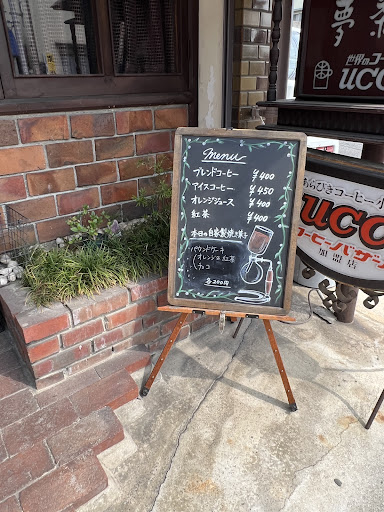 menu
ブレンドコーヒー ¥400
アイスコーヒー ¥450
オレンジジュース ¥400
紅茶 ¥400
本日の自家製焼き菓子
パウンドケーキ
(オレンジ&紅茶
チョコ
各200円
夢
世界のコー
UCC
あらびきコーヒー
UCC
コーヒーバザール
加盟店